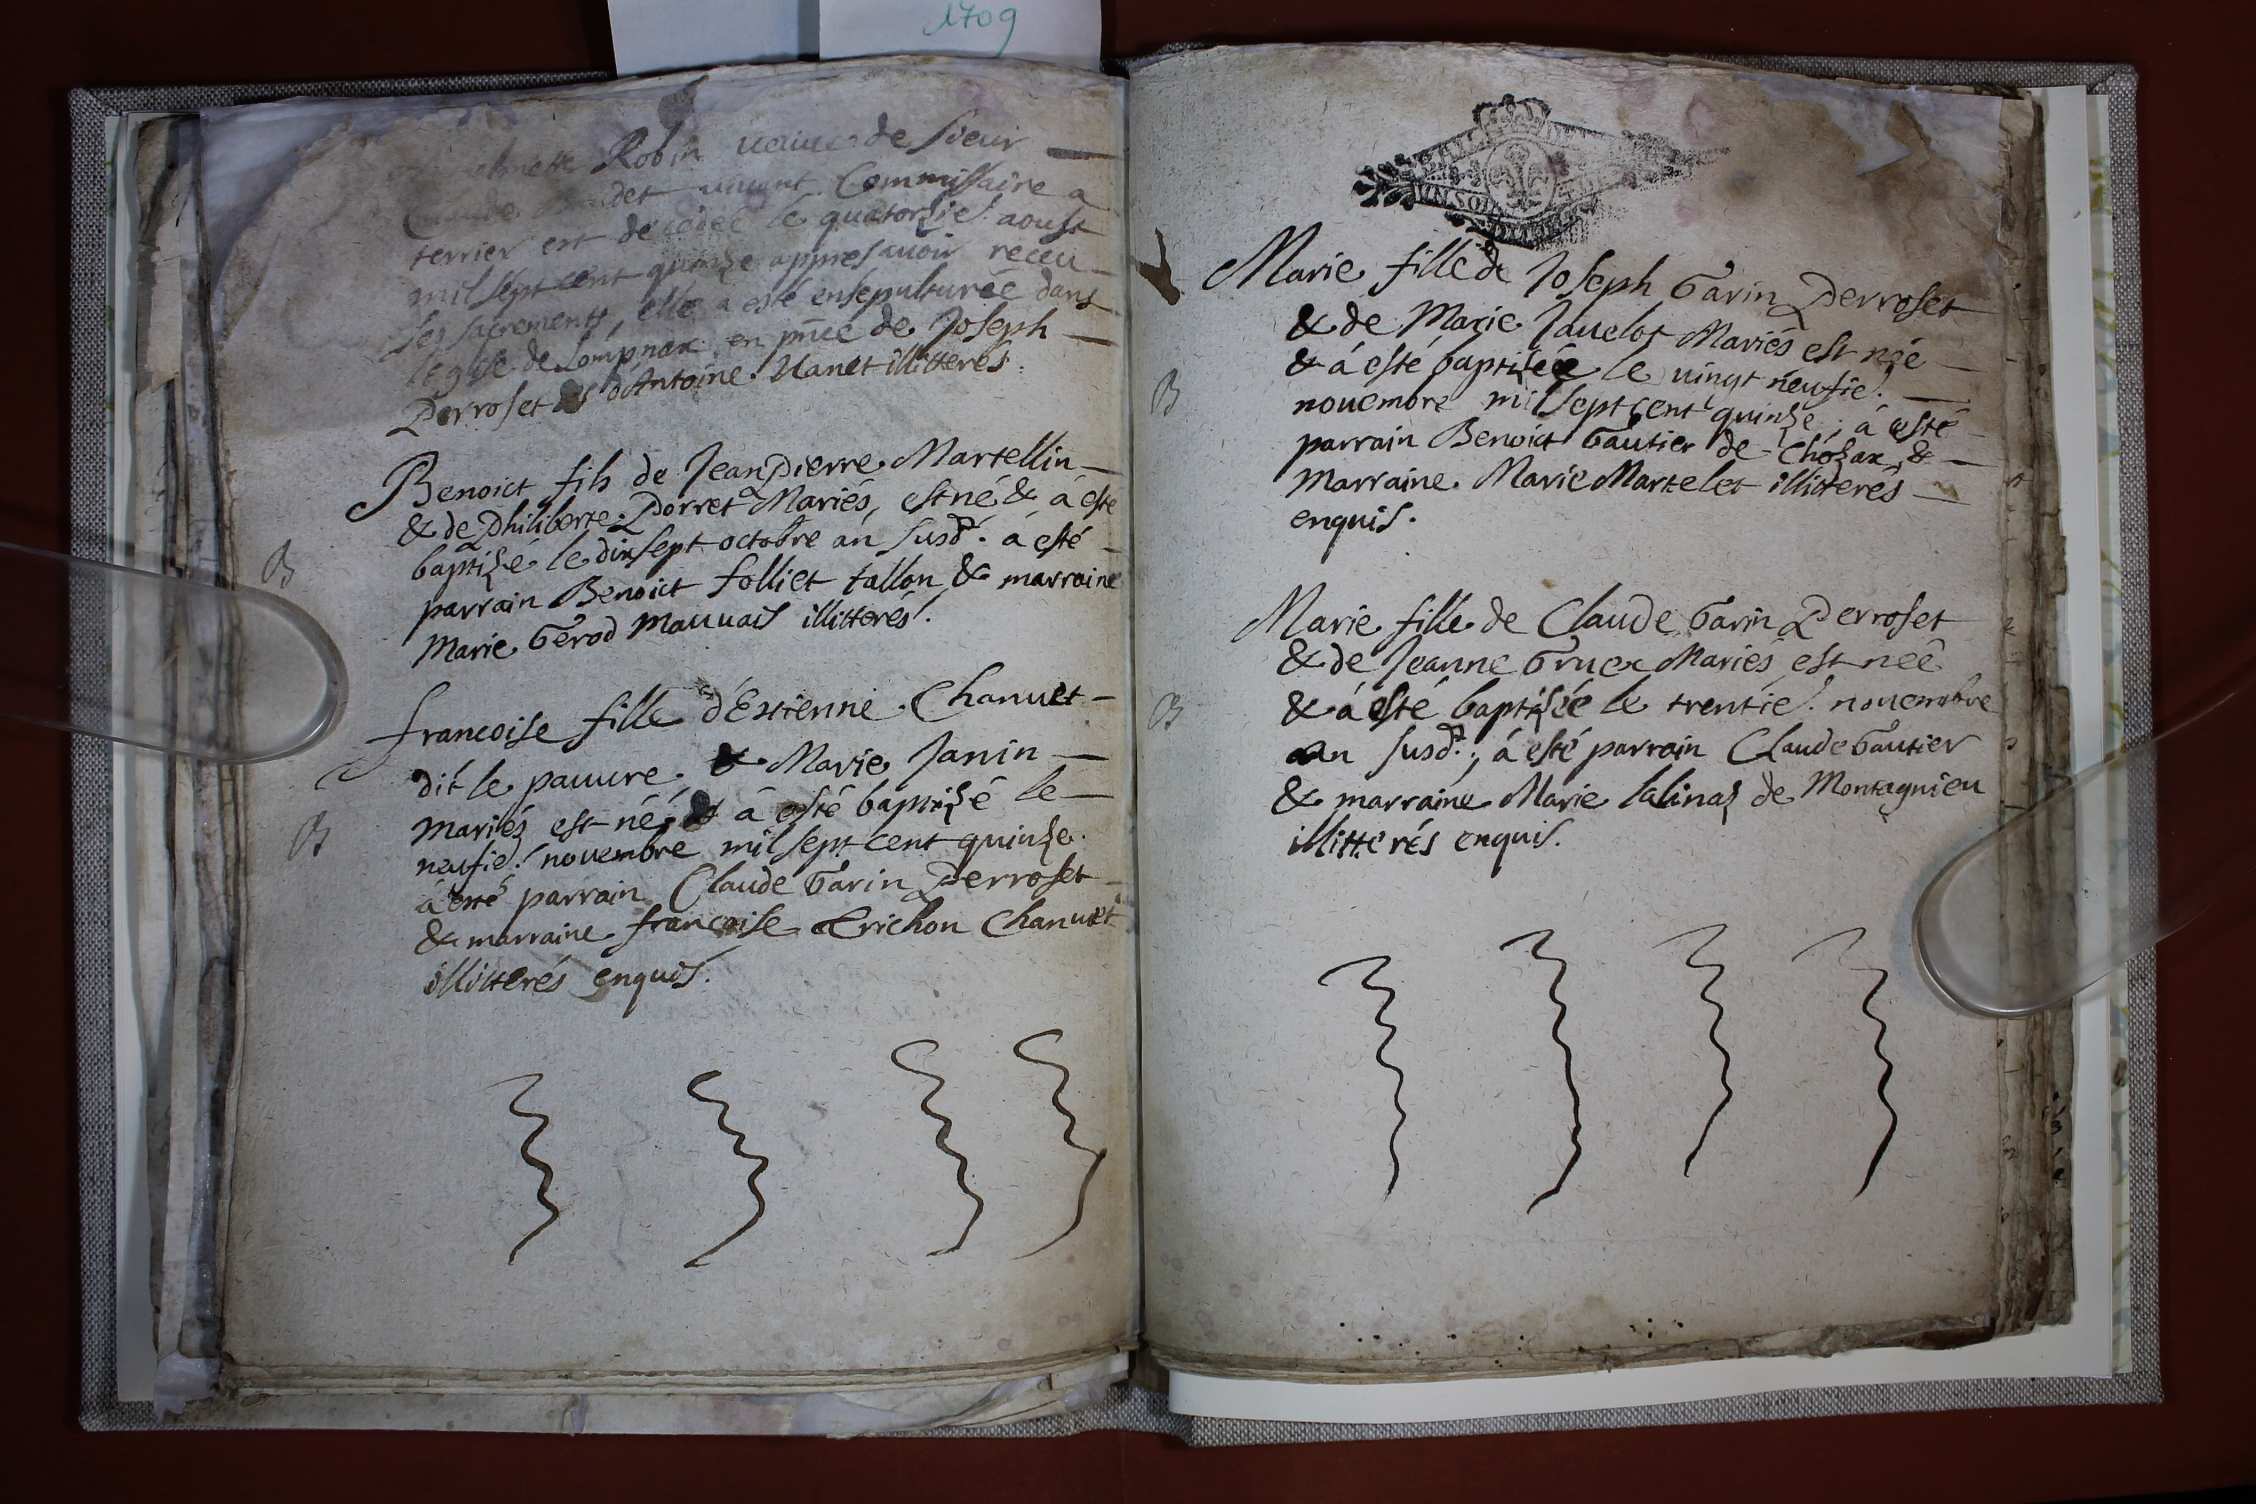 1709
Robin veuve de sieur
Claude vivant Commissaire a
terrier est decédée le quatorzie. aoust
mil sept cent quinze appres avoir receu
les sacrements, elle a esté ensépulturée dans
leglise de Lompnax en pñce de Joseph
Perroset & d'Antoine Vanet illitterés
Benoict fils de Jean Pierre Martellin
& de Philiberte Porret Mariés, est né & á esté
baptizé le dix sept octobre án susd. a esté
parrain Benoict folliet tallon & marraine
Marie Gerod Mauvais illitterés.
B
francoise fille d'Estienne Chanuet
dit le pauvre, & Marie Janin
Mariés est né, & á esté baptizé le
neufie. novembre mil sept cent quinze.
á esté parrain Claude Garin Perroset
& marraine francoise Trichon Chanuet
illitterés enquis.
B
UN SOL
Marie fille de Joseph Garin Perroset
& de Marie Javelot Mariés est née
& á esté baptizée le vingt neufie.
novembre mil sept cent quinze; á esté
parrain Benoict Gautier de Chozax, &
Marraine Marie Martelet illitterés
enquis.
B
Marie fille de Claude Garin Perroset
& de Jeanne Gruex Mariés est neé
& á esté baptizée le trentie. novembre
an susd.; á esté parrain Claude Gautier
& marraine Marie lalinaz de Montagnieu
illitterés enquis.
B